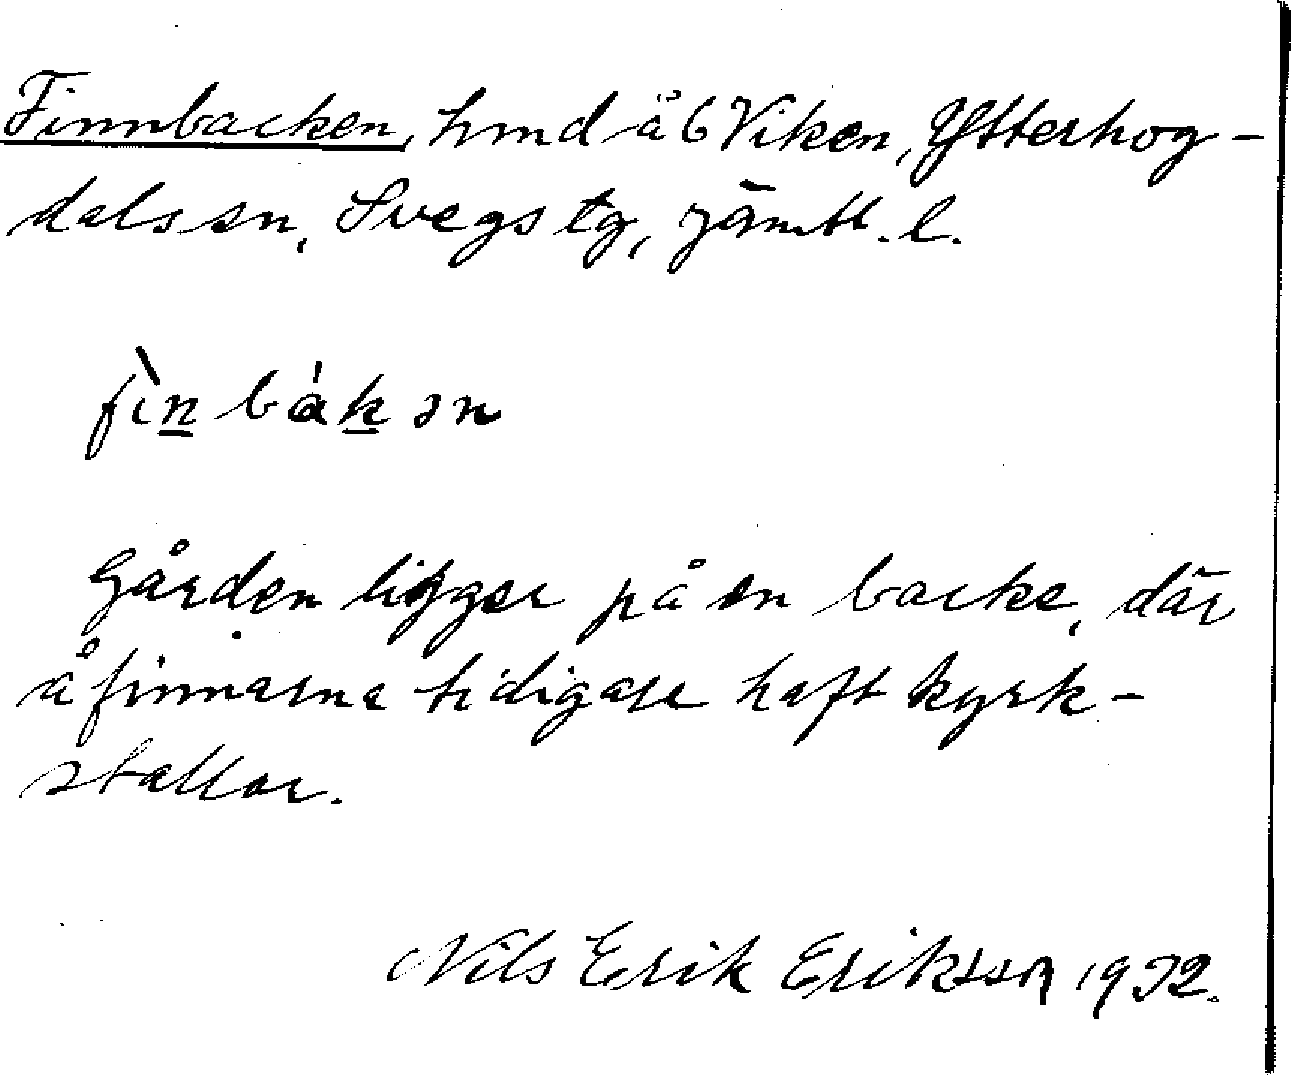 Finnbacken, hmd å 6 Viken, Ytterhog-
dals sn, Svegs tg, Jämtl. l.
fìn bák ən
Gården ligger på en backe, där
åfinnarna tidigare haft kyrk-
stallar.
Nils Erik Eriksson 1932.